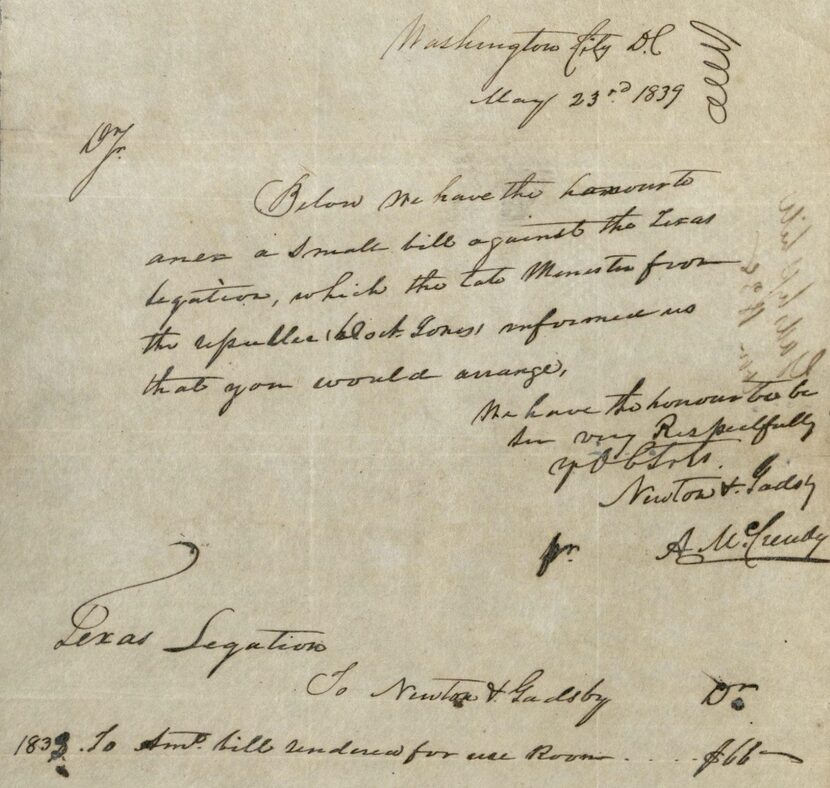 Washington City D.C
May 23rd 1839
Dr Sr
Below we have the honour to
anex a Small bill against the Texas
Legation, which the late Menester from
the republic (Doct. Jones) informed us
that you would arrange,
We have the honour to be
Sir very Respectfully
yr Obt Svts.
Newton & Gadsby
pr A. McCreudy
Texas Legation
To Newton & Gadsby Dr
1839. To Amt. bill rendered for use Room .... $66—